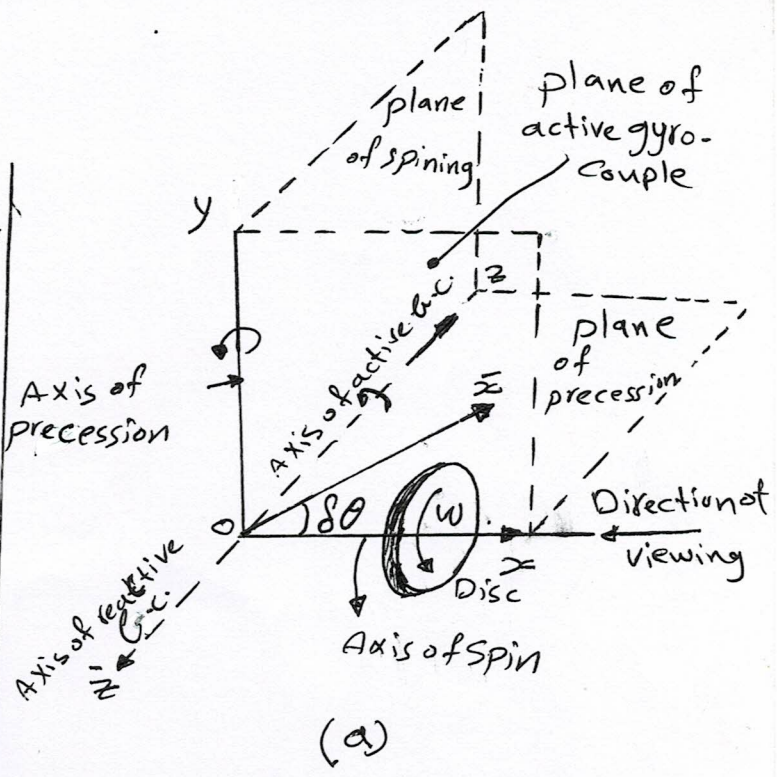 plane
of spining
plane of
active gyro-
Couple
y
z
Axis of active G.C.
plane
of
precession
Axis of
precession
x̄
o
δθ
ω
Disc
x
Direction of
viewing
Axis of Spin
Axis of reative
G.C.
z'
(a)